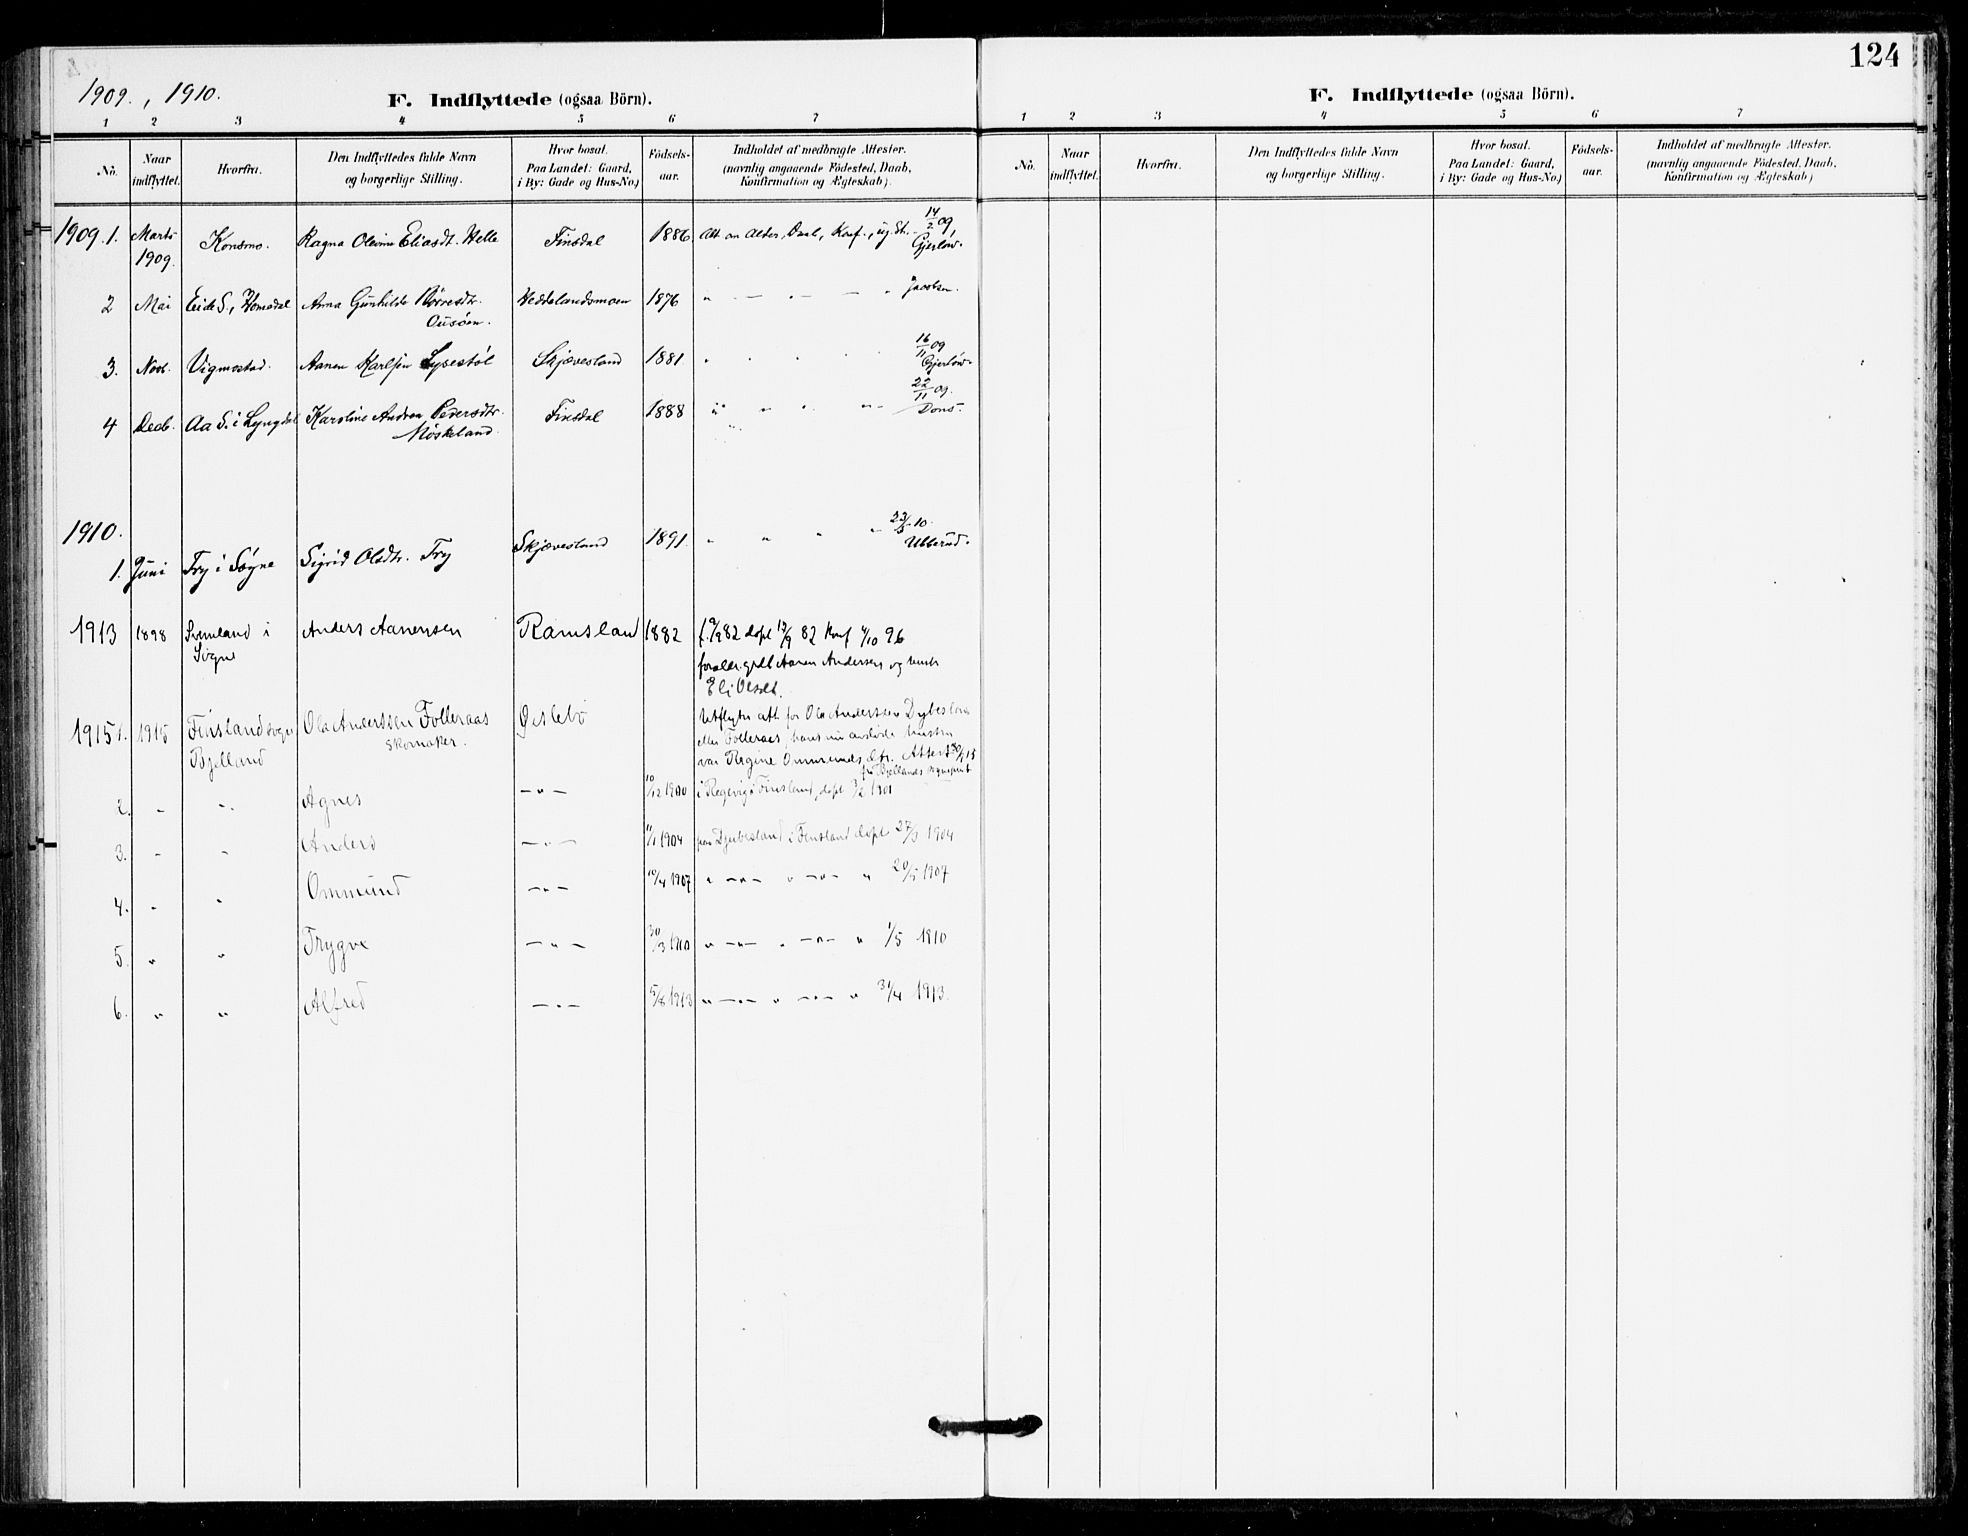 124
1909., 1910.
F. Indflyttede (ogsaa Börn).
1 2 3 4 5 6 7
No. Naar indflyttet. Hvorfra. Den Indflyttedes fulde Navn og borgerlige Stilling. Hvor bosat. Paa Landet: Gaard, i By: Gade og Hus-No.) Födsels-aar. Indholdet af medbragte Attester. (navnlig angaaende Födested, Daab, Konfirmation og Ægteskab).
1909. 1. Marts 1909. Konsmo. Ragna Olevine Eliasdt. Helle Finsdal 1886 Att om Alder, Daab, Konf., ug. St. 14/2 09, Gjerløw.
2 Mai Eide S., Homedal Anna Gunhilde Heddelandsmoen 1876 " — " — " Jacobsen.
3. Novb. Vigmostad. Aanen Karlsen Lysestøl Skjævesland 1881 " " " " 16/11 09 Gjerløw.
4 Decb. Aa S. i Lyngdal Karoline Andrea Pedersdtr. Møskeland. Finsdal 1888 " " " " 22/11 09. Dons.
1910.
1. Juni Try i Søgne Sigrid Olsdtr. Try Skjævesland 1891. " " " " 23/5 10. Ubberud.
1913 1898 i Søgne Anders Aanensen Ramsland 1882 f. 9/9 82 døpt 17/9 82 Konf 4/10 96
forældr. gdbr Aanen Andersen og hustr
Eli Olsdt.
1915 1. 1915 Finsland sogn Bjelland Ola Anderssen Folleraas skomaker. Øislebø Utflytn att. for Ola Anderssen Dybesland
eller Folleraas, hans nu avdøde hustru
var Regine Ommunds dtr. Attest 30/1 15
fra Bjellands sogneprest
2. " " Agnes — " — 10/12 1900 i Finsland, døpt 3/2 1901
3. " " Anders — " — 11/1 1904 paa Djubesland i Finsland døpt 27/3 1904
4. " " Ommund — " — 10/4 1907 " — " — " — " — " 20/5 1907
5. " " Trygve — " — 30/3 1910 " — " — " — " — " 1/5 1910
6. " " Alfred — " — 5/8 1913 " — " — " — " — " 1913.
F. Indflyttede (ogsaa Börn).
1 2 3 4 5 6 7
No. Naar indflyttet. Hvorfra. Den Indflyttedes fulde Navn og borgerlige Stilling. Hvor bosat. Paa Landet: Gaard, i By: Gade og Hus-No.) Födsels-aar. Indholdet af medbragte Attester. (navnlig angaaende Födested, Daab, Konfirmation og Ægteskab)